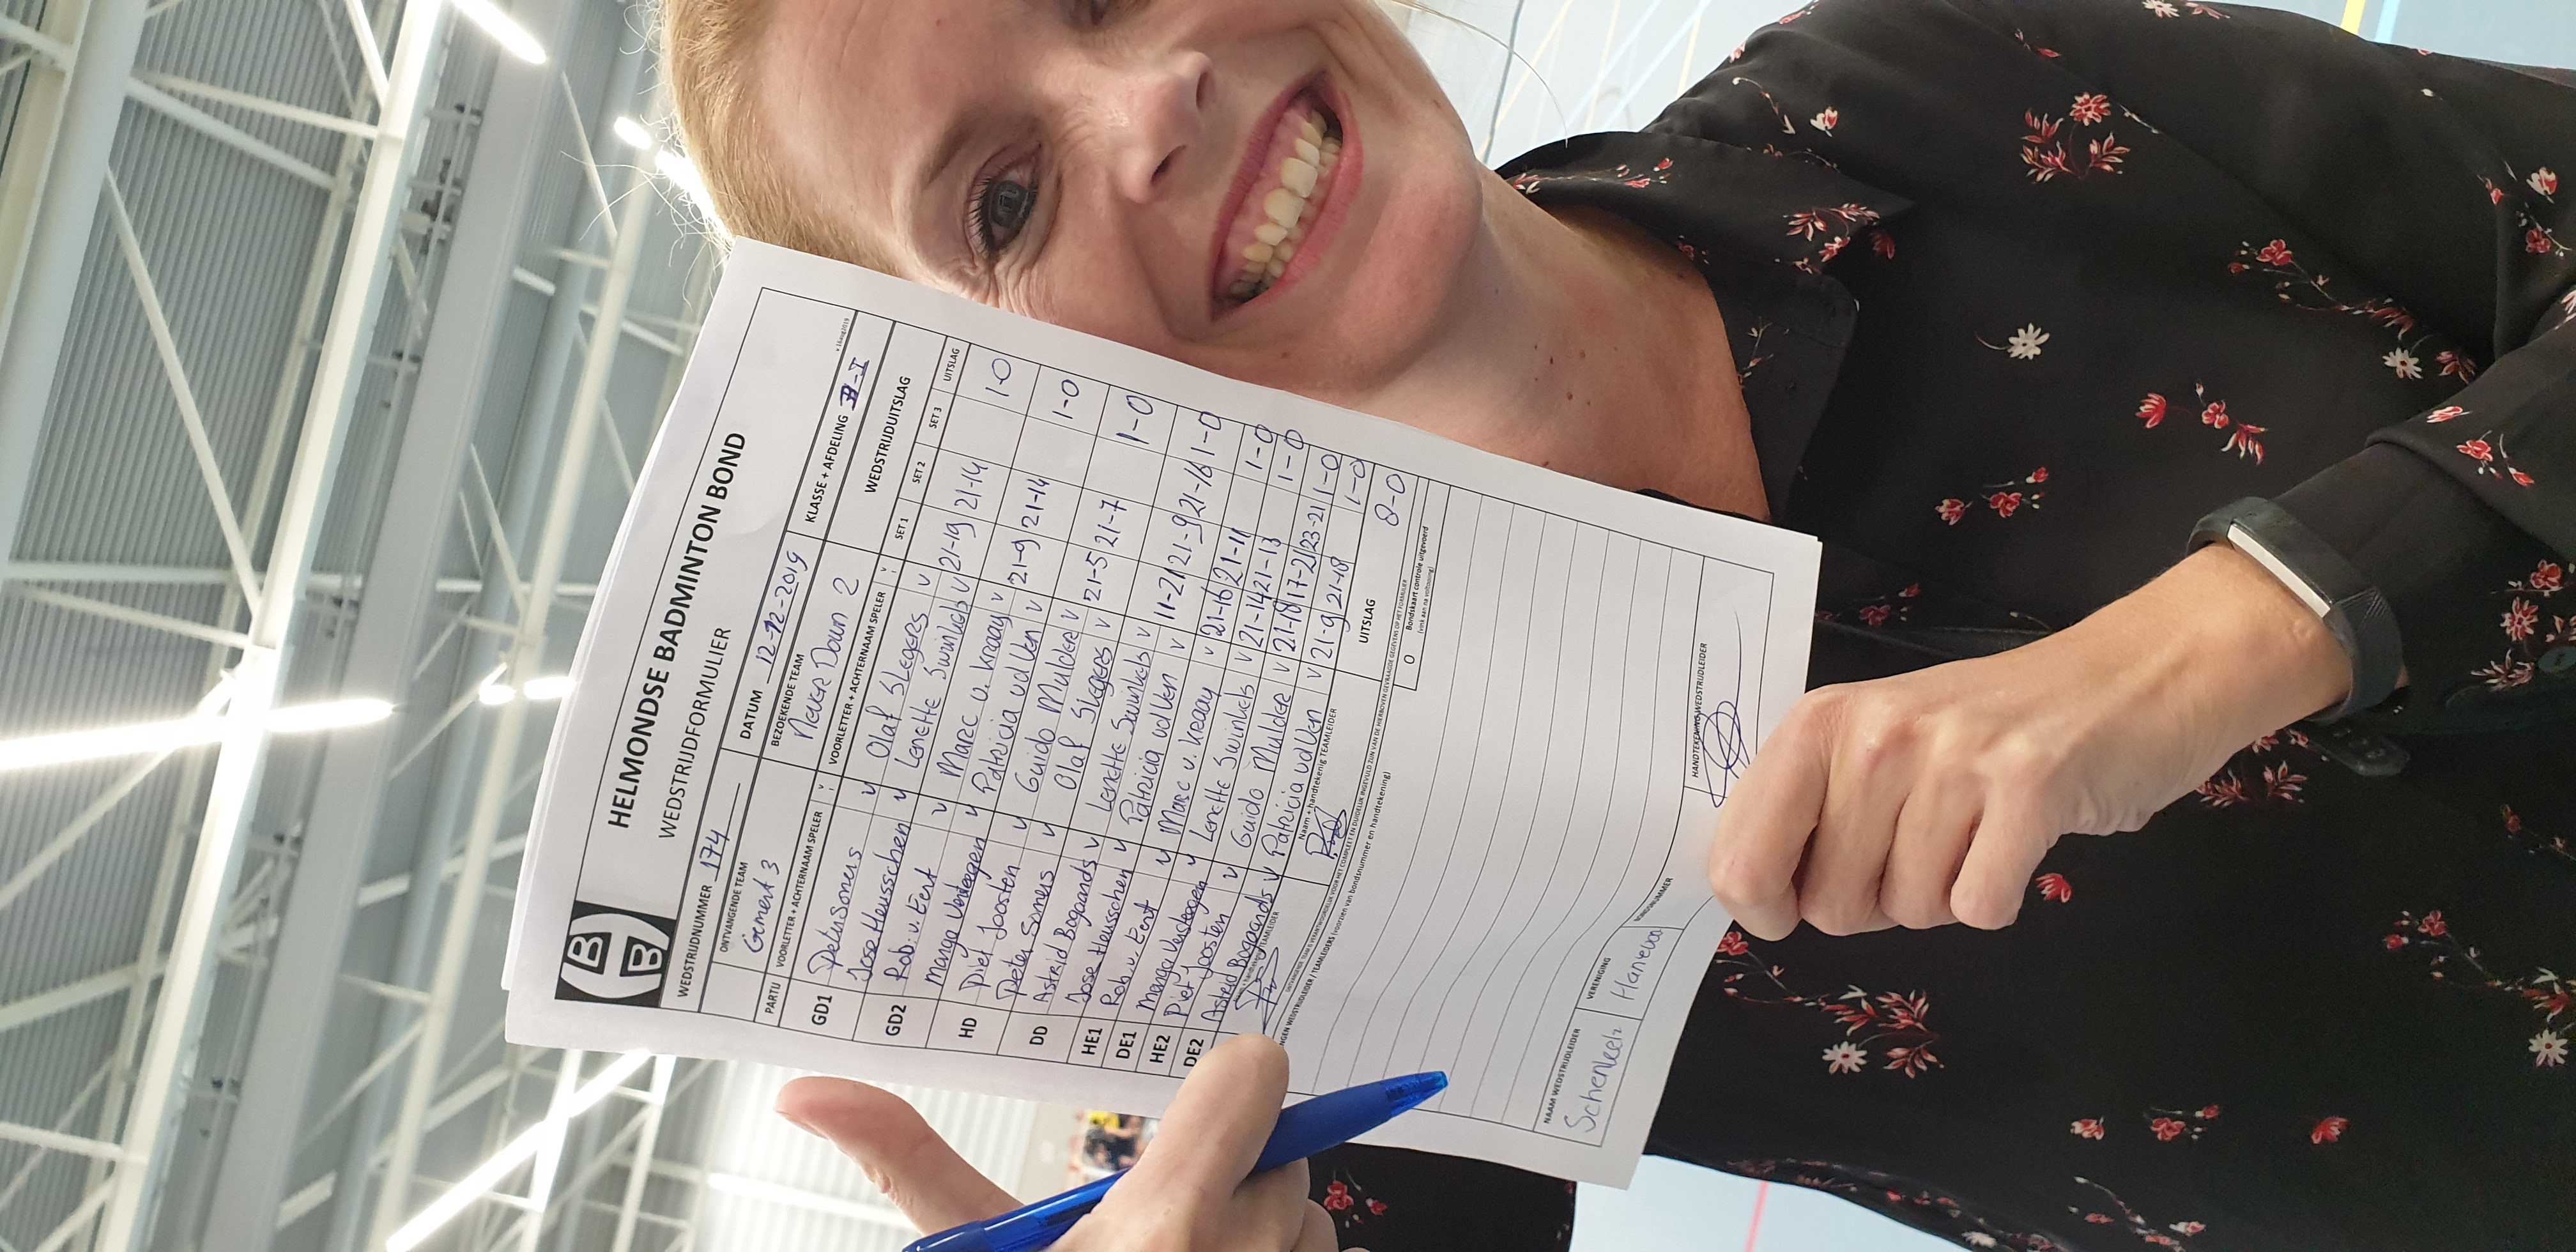 HELMONDSE BADMINTON BOND
WEDSTRIJDFORMULIER
B
B
WEDSTRIJDNUMMER 174 DATUM 12-12-2019 KLASSE + AFDELING B-I
ONTVANGENDE TEAM BEZOEKENDE TEAM
Gemert 3 Never Down 2 WEDSTRIJDUITSLAG
PARTIJ VOORLETTER + ACHTERNAAM SPELER V VOORLETTER + ACHTERNAAM SPELER V SET 1 SET 2 SET 3 UITSLAG
GD1 Peter Somers v Olaf Slegers v 21-19 21-14 1-0
Jose Heusschen v Lenette Swinkels v
GD2 Rob v. Eert v Marc v. Kraaij v 21-9 21-14 1-0
Manga Verstegen v Patricia vd Ven v
HD Piet Joosten v Guido Mulder v 21-5 21-7 1-0
Peter Somers v Olaf Slegers v
DD Astrid Bogaards v Lenette Swinkels v 11-21 21-9 21-16 1-0
Jose Heusschen v Patricia vd Ven v
HE1 Rob v. Eert v Marc v. Kraaij v 21-16 21-11 1-0
DE1 Manga Verstegen v Lenette Swinkels v 21-14 21-13 1-0
HE2 Piet Joosten v Guido Mulder v 21-18 17-21 23-21 1-0
DE2 Astrid Bogaards v Patricia vd Ven v 21-9 21-18 1-0
Naam + handtekenig TEAMLEIDER UITSLAG 8-0
O Bondskaart controle uitgevoerd
(vink aan na voltooiing)
NGEN WEDSTRIJDLEIDER / TEAMLEIDERS (voorzien van bondsnummer en handtekening)
NAAM WEDSTRIJDLEIDER VERENIGING BONDSNUMMER HANDTEKENING WEDSTRIJDLEIDER
Schenkels